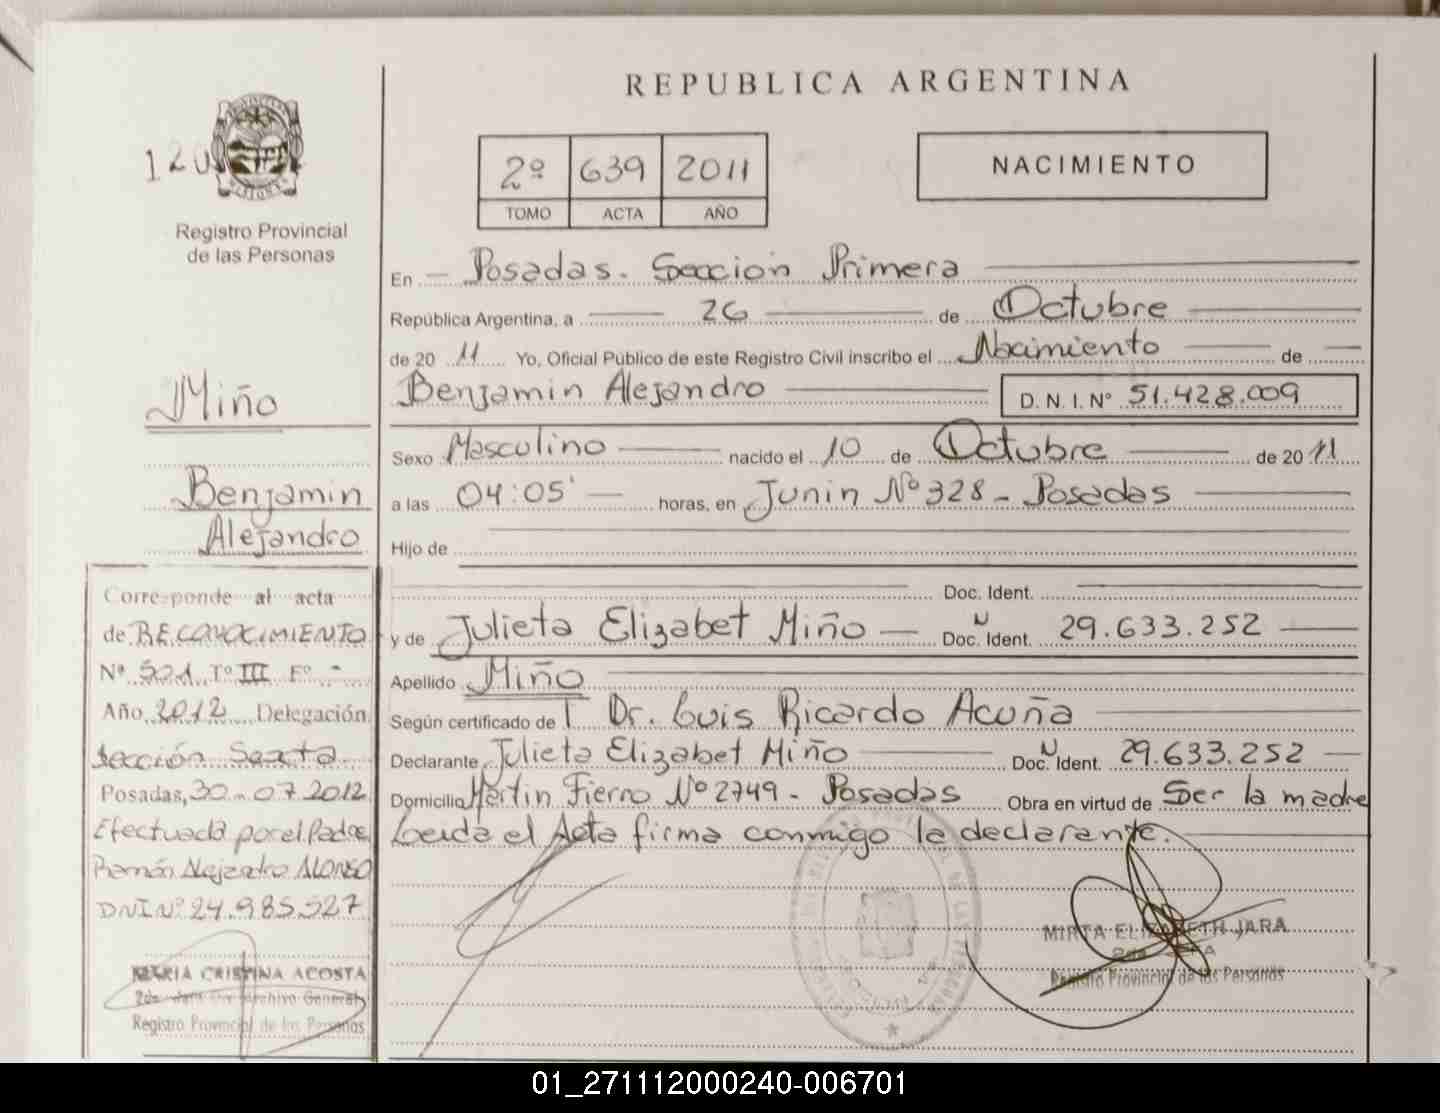 REPUBLICA ARGENTINA
120
Registro Provincial
de las Personas
2º 639 2011
TOMO ACTA AÑO
NACIMIENTO
En Posadas. Sección Primera
República Argentina, a 26 de Octubre
de 2011 Yo, Oficial Público de este Registro Civil inscribo el Nacimiento de
Benjamin Alejandro D. N. I. Nº 51.428.009
Sexo Masculino nacido el 10 de Octubre de 2011
a las 04:05' horas, en Junin Nº 328 - Posadas
Hijo de
Doc. Ident.
y de Julieta Elizabet Miño Doc. Ident. 29.633.252
Apellido Miño
Según certificado de Dr. Luis Ricardo Acuña
Declarante Julieta Elizabet Miño Doc. Ident. 29.633.252
Domicilio Martin Fierro Nº 2749 - Posadas Obra en virtud de Ser la madre
Leida el Acta firma conmigo la declarante.
MIRTA ELIZABETH JARA
Registro Provincial de las Personas
Miño
Benjamin
Alejandro
Corresponde al acta
de RECONOCIMIENTO
Nº 501 Tº III Fº -
Año 2012 Delegación
Sección Sexta
Posadas, 30-07-2012
Efectuada por el Padre
Ramón Alejandro ALONSO
DNI Nº 24.985.527
MARIA CRISTINA ACOSTA
Archivo General
Registro Provincial de las Personas
01_271112000240-006701